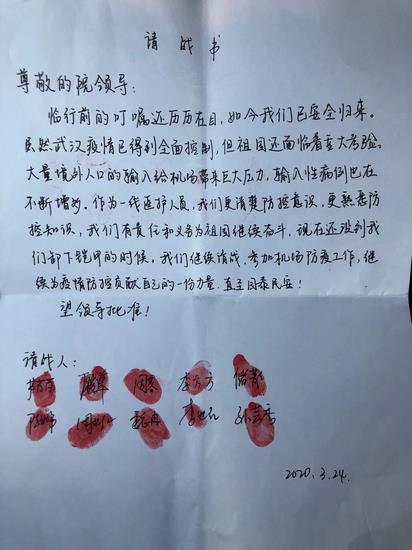 请战书
尊敬的院领导：
临行前的叮嘱还历历在目，如今我们已安全归来。
虽然武汉疫情已得到全面控制，但祖国还面临着重大考验。
大量境外人口的输入给机场带来巨大压力，输入性病例也在
不断增多。作为一线医护人员，我们更清楚防控意识，更熟悉防
控知识，我们有责任和义务为祖国继续奋斗，现在还没到我
们卸下铠甲的时候。我们继续请战，参加机场防疫工作，继
续为疫情防控贡献自己的一份力量，直至国泰民安！
望领导批准！
请战人：
2020.3.24.